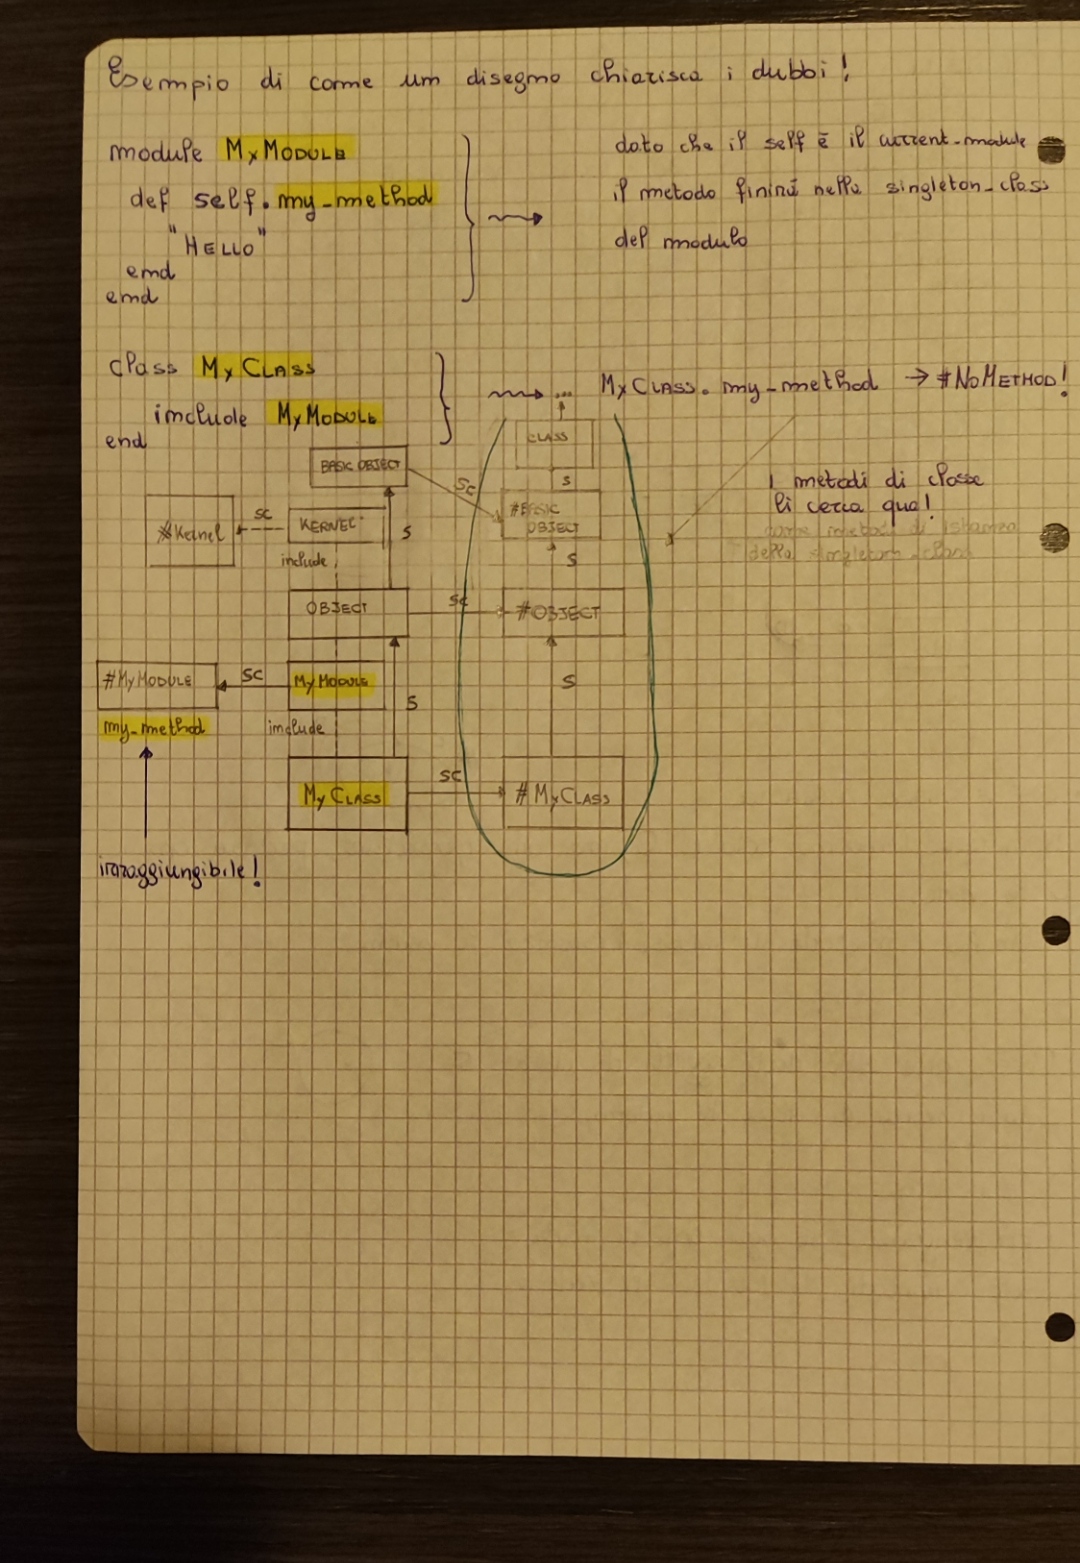 Esempio di come un disegno chiarisca i dubbi!
module MyMODULE
def self.my_method
"HELLO"
end
end
dato che il self è il current-module
il metodo finirà nella singleton_class
del modulo
class MyCLASS
include MyMODULE
end
... MyCLASS.my_method → #NOMETHOD!
I metodi di classe
li cerca qua!
come metodi di istanza
della singleton_class
CLASS
S
BASIC OBJECT
SC
#BASIC
OBJECT
#Kernel
SC
KERNEL
S
include
S
OBJECT
SC
#OBJECT
#MyMODULE
SC
MyMODULE
S
S
my_method
include
MyCLASS
SC
#MyCLASS
irraggiungibile!